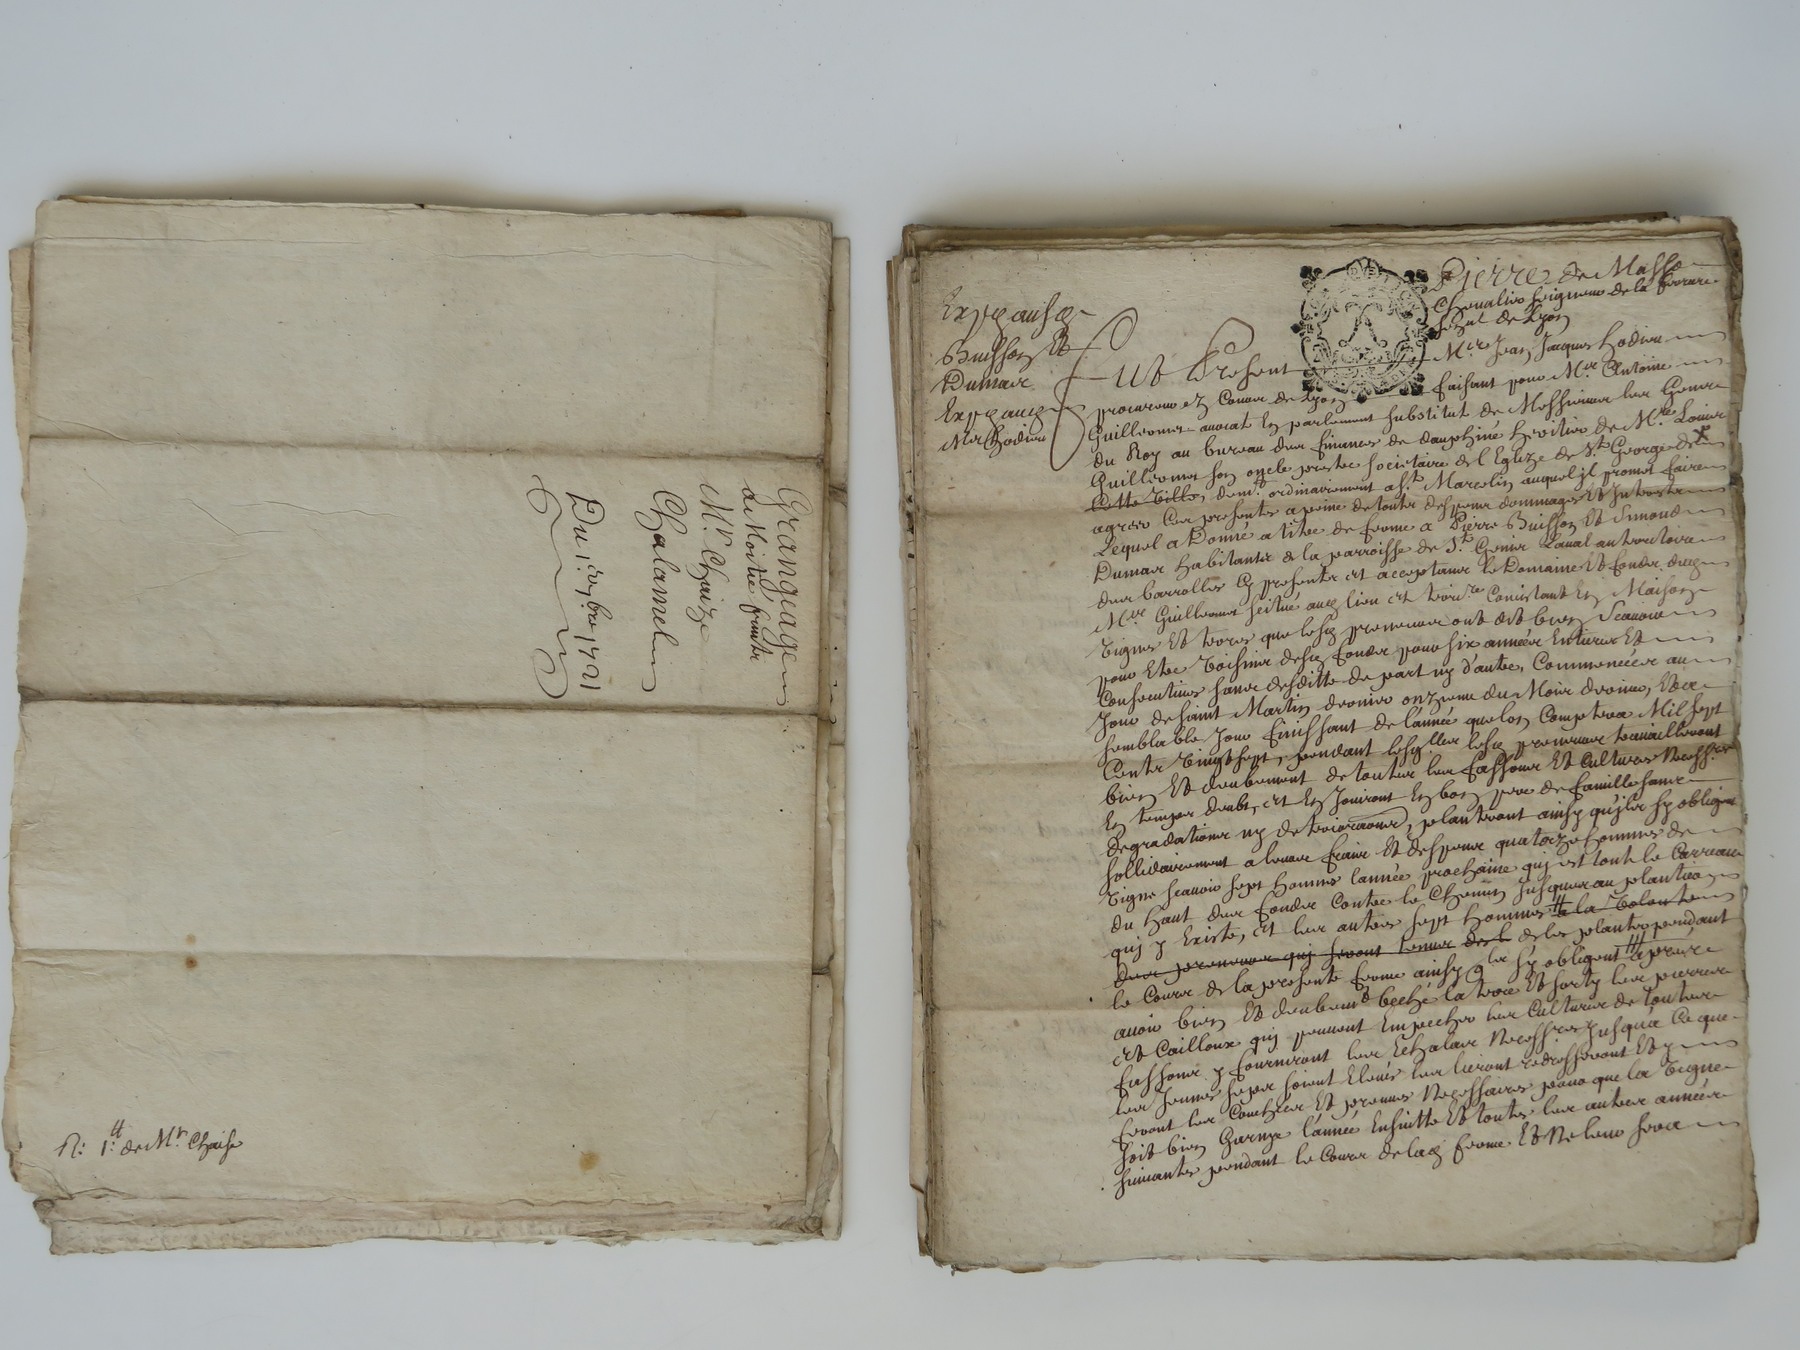 Grangeage
a Moitié fruits
Mr. Chaize
Chalamel
Du 1er 9bre 1721
R: 1: tt de Mr. Chaise
Exp. au sr
Buisson Et
Dumas
Exp. au
Mr. Hodieu
Pierre de Masso
Chevalier seigneur de la ferriere
senal de Lyon
fut Present Mr. Jean Jacques Hodieu
procureur ez Cours de Lyon faisant pour Mr. Antoine
Guillermet avocat en parlement substitut de Messieurs les Gens
du Roy au bureau des finances de dauphiné heritier de Mre. Louis
Guillermet son oncle prestre societaire de l'Eglize de St. George de
Cette Ville, demt. ordinairement a St. Marcelin auquel jl promet faire
agreer Ces presentes a peine de toutes despens dommages Et Interests
Lequel a Donné a titre de ferme a Pierre Buisson Et Simond
Dumas habitants de la parroisse de St. Genis Laval au territoire
des barrolles Cy presents et acceptans le Domaine Et fonds dud
Mre. Guillermet scitué aud lieu et terroire Consistant En Maison
Vignes Et terres que lesd preneurs ont dit bien Scavoir
pour Etre Voisins desd fonds pour six années Entieres Et
Consecutives sans desditte de part ny d'autre, Commencées au
Jour de saint Martin dernier onzieme du Mois dernier, Et a
semblable Jour finissant de l'année que lon Comptera Mil sept
Cents Vingt sept, pendant lesqlles lesd preneurs travailleront
bien Et deubement de toutes les fassons Et Cultures Necessres
En temps deubs, et En Jouiront En bon pere de famille sans
degradations ny deteriorations, planteront ainsy qu'jls sy obligent
sollidairement a leurs frais Et despens quatorze hommes de
Vigne scavoir sept hommes lannée prochaine quj est tout le Carreau
du haut des fonds Contre le Chemin jusques au plantier
quj y Existe, et les autres sept hommes tt a la volonté
des preneurs quj seront tenus des l de les planter pendant
le Cours de la presente ferme ainsy qls sy obligent ttt apres
avoir bien Et deubemt beché la terre Et sorty les pierres
et Cailloux quj peuvent Empecher les Cultures de toutes
fassons y fourniront les Echalas Necessres jusqua Ce que
les jeunes seps soient Elevés les lieront redresseront Et y
feront les Couchées Et preuves Necessaires pour que la Vigne
soit bien Garnye l'année Ensuitte Et toutes les autres années
suivantes pendant le Cours de lad ferme Et Ne leur sera